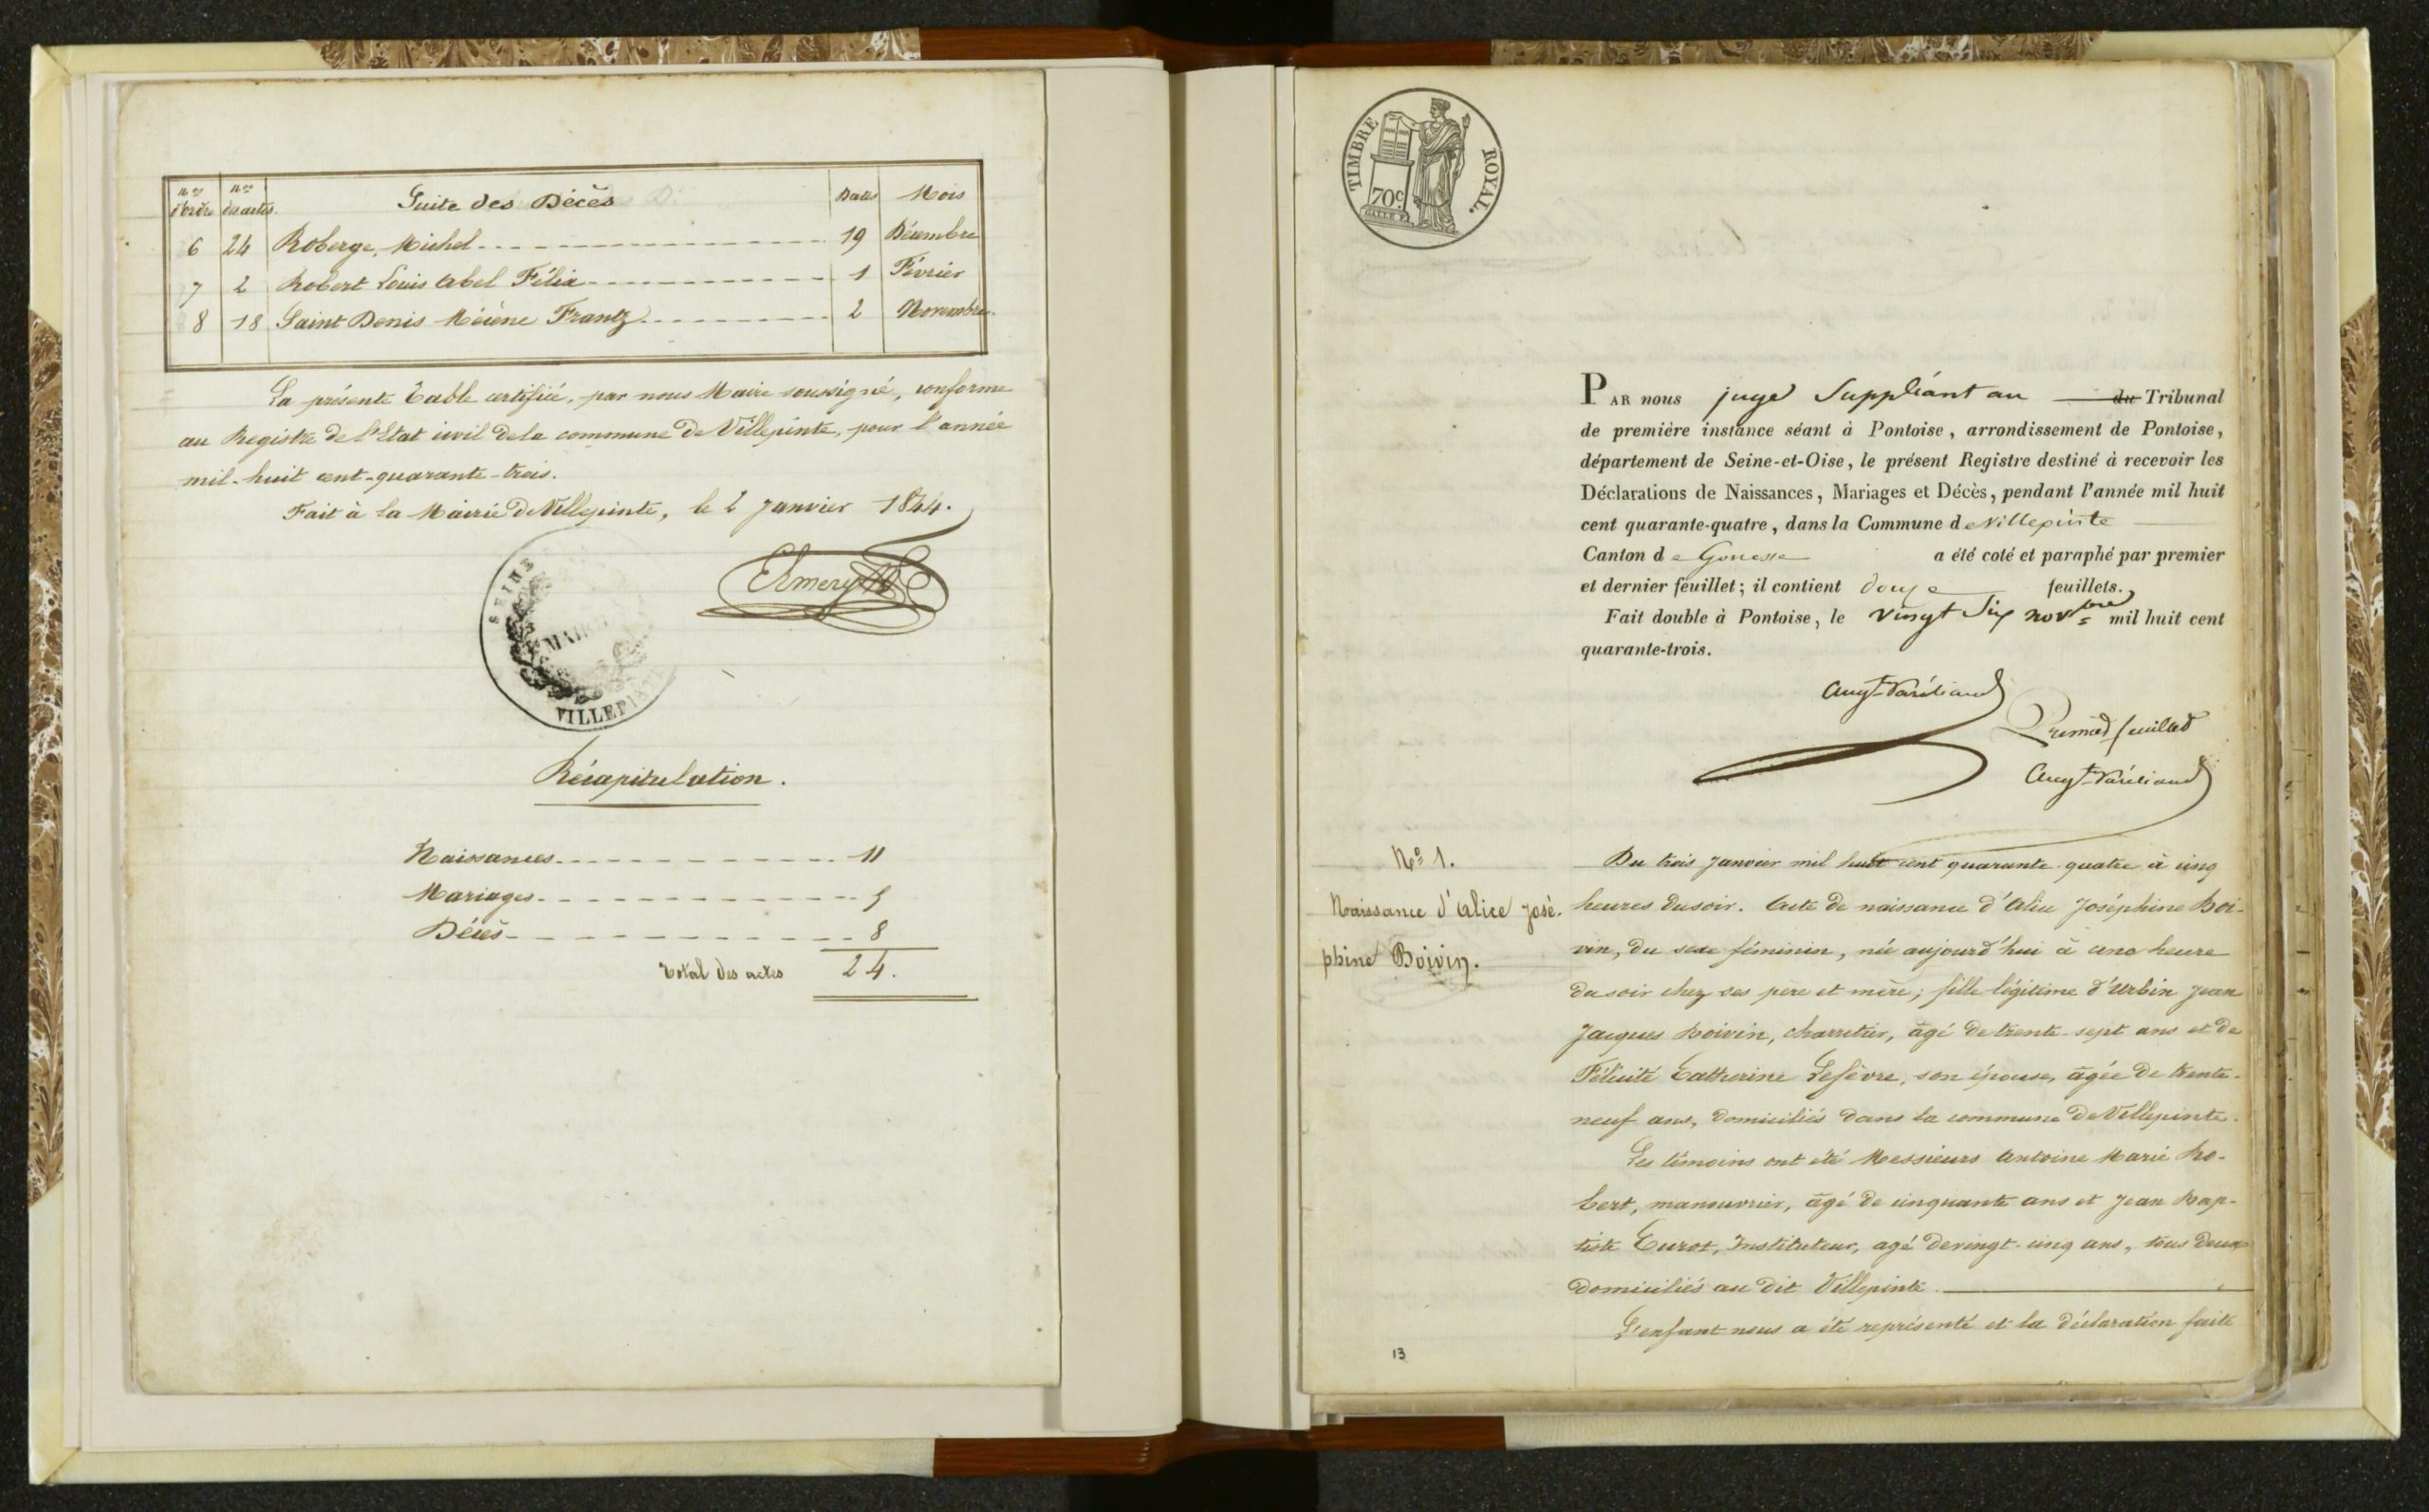 nos d'ordre nos des actes. Suite des Décès Dates Mois
6 24 Roberge, Michel 19 Décembre
7 2 Robert Louis Abel Félix 1 Février
8 18 Saint Denis Mécène Frantz 2 Novembre.
La présente Table certifiée, par nous Maire soussigné, conforme
au Registre de l'Etat civil de la commune de Villepinte, pour l'année
mil-huit cent-quarante-trois.
Fait à la Mairie de Villepinte, le 2 Janvier 1844.
SEINE
MAIRIE
VILLEPINTE
Récapitulation.
Naissances 11
Mariages 5
Décès 8
Total des actes 24.
TIMBRE ROYAL.
70c.
PAR nous juge Suppléant au du Tribunal
de première instance séant à Pontoise, arrondissement de Pontoise,
département de Seine-et-Oise, le présent Registre destiné à recevoir les
Déclarations de Naissances, Mariages et Décès, pendant l'année mil huit
cent quarante-quatre, dans la Commune de Villepinte
Canton de Gonesse a été coté et paraphé par premier
et dernier feuillet; il contient douze feuillets.
Fait double à Pontoise, le vingt Six novbre mil huit cent
quarante-trois.
Premier feuillet
No 1.
Naissance d'Alice José-
phine Boivin.
Du trois Janvier mil huit cent quarante-quatre à cinq
heures du soir. Acte de naissance d'Alice Joséphine Boi-
vin, du sexe féminin, née aujourd'hui à une heure
du soir chez ses père et mère; fille légitime d'Urbin Jean
Jacques Boivin, charretier, âgé de trente-sept ans et de
Félicité Catherine Lefèvre, son épouse, âgée de trente-
neuf ans, domiciliés dans la commune de Villepinte.
Les témoins ont été Messieurs Antoine Marie Ro-
bert, manouvrier, âgé de cinquante ans et Jean Bap-
tiste Curot, Instituteur, agé de vingt-cinq ans, tous deux
domiciliés au dit Villepinte.
L'enfant nous a été représenté et la déclaration faite
13